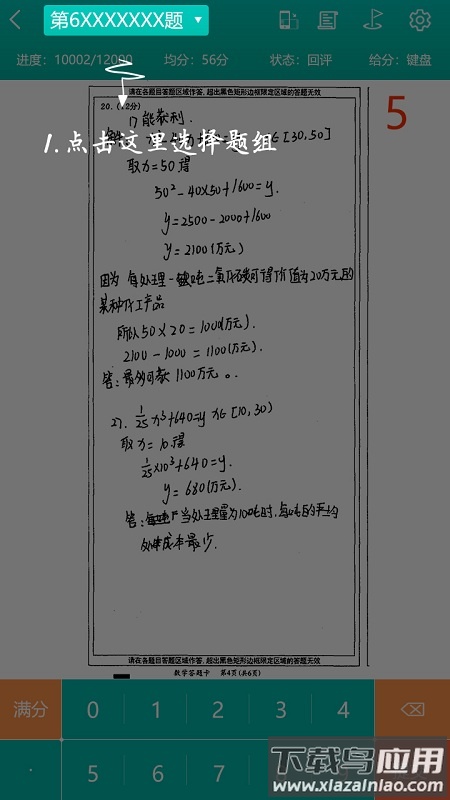 第6XXXXXXX题
进度：10002/12000 均分：56分 状态：回评 给分：键盘
请在各题目答题区域作答，超出黑色矩形边框限定区域的答题无效
5
20.（12分）
1.点击这里选择题组
取x=50得
50²-40×50+1600=y.
y=2500-2000+1600
y=2100(万元)
因为 每处理一吨二氧化碳可得价值为20万元的
某种化工产品
所以50×20=1000(万元).
2100-1000=1100(万元).
答：最多可获1100万元。
2). 1/25 x³+640=y x∈[10,30)
取x=10得
1/25×10³+640=y.
y=680(万元).
答：当处理量为100吨时,每吨的平均
处理成本最少.
请在各题目答题区域作答，超出黑色矩形边框限定区域的答题无效
数学答题卡 第4页(共6页)
满分 0 1 2 3 4
. 5 6 7
下载鸟应用
www.xiazainiao.com